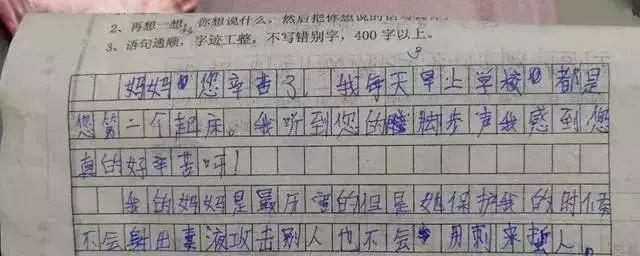 2、再想一想，你想说什么，然后把你想说的话写
3、语句通顺，字迹工整，不写错别字，400字以上。
妈妈您辛苦了，我每天早上学校都是
您第二个起床。我听到您的脚步声我感到您
真的好辛苦呀！
我的妈妈是最厉害的但是她保护我的时候
不会射出毒液攻击别人也不会用刺来蜇人。